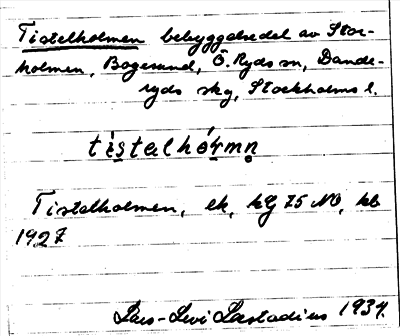 Tistelholmen bebyggelsedel av Stor-
holmen, Bogesund, Ö. Ryds sn, Dande-
ryds skg, Stockholms l.
tìstalhórmṇ
Tistelholmen, ek, kg 75 NO, kb
1927
Lars-Levi Læstadius 1934.